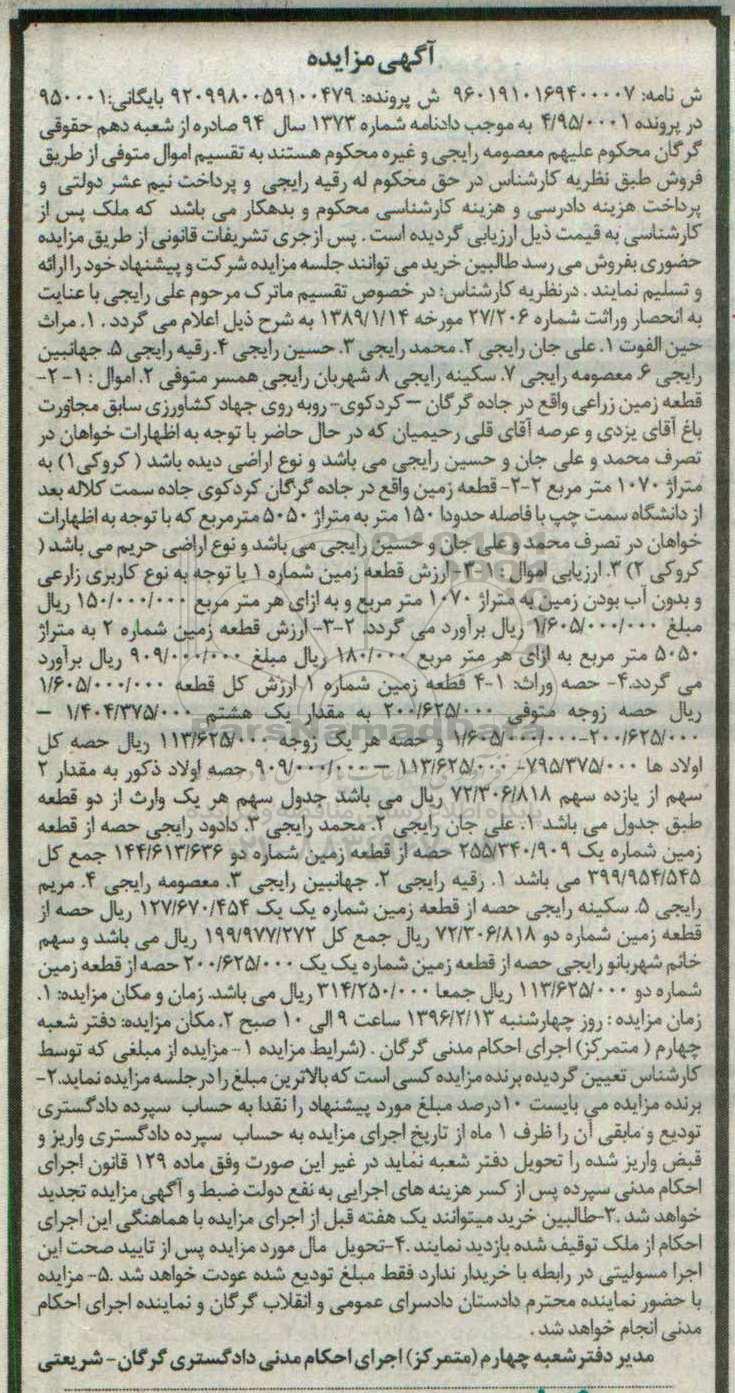 آگهی مزایده
ش نامه: ۹۶۰۱۹۱۰۱۶۹۴۰۰۰۰۷ ش پرونده: ۹۲۰۹۹۸۰۰۵۹۱۰۰۴۷۹ بایگانی: ۹۵۰۰۰۱
در پرونده ۴/۹۵/۰۰۰۱ به موجب دادنامه شماره ۱۳۷۳ سال ۹۴ صادره از شعبه دهم حقوقی
گرگان محکوم علیهم معصومه رایجی و غیره محکوم هستند به تقسیم اموال متوفی از طریق
فروش طبق نظریه کارشناس در حق محکوم له رقیه رایجی و پرداخت نیم عشر دولتی و
پرداخت هزینه دادرسی و هزینه کارشناسی محکوم و بدهکار می باشد که ملک پس از
کارشناسی به قیمت ذیل ارزیابی گردیده است . پس ازجری تشریفات قانونی از طریق مزایده
حضوری بفروش می رسد طالبین خرید می توانند جلسه مزایده شرکت و پیشنهاد خود را ارائه
و تسلیم نمایند . درنظریه کارشناس: در خصوص تقسیم ماترک مرحوم علی رایجی با عنایت
به انحصار وراثت شماره ۲۷/۲۰۶ مورخه ۱۳۸۹/۱/۱۴ به شرح ذیل اعلام می گردد . ۱. مراث
حین الفوت ۱. علی جان رایجی ۲. محمد رایجی ۳. حسین رایجی ۴. رقیه رایجی ۵. جهانبین
رایجی ۶. معصومه رایجی ۷. سکینه رایجی ۸. شهربان رایجی همسر متوفی ۲. اموال : ۱-۲-
قطعه زمین زراعی واقع در جاده گرگان – کردکوی- روبه روی جهاد کشاورزی سابق مجاورت
باغ آقای یزدی و عرصه آقای قلی رحیمیان که در حال حاضر با توجه به اظهارات خواهان در
تصرف محمد و علی جان و حسین رایجی می باشد و نوع اراضی دیده باشد ( کروکی۱) به
متراژ ۱۰۷۰ متر مربع ۲-۲- قطعه زمین واقع در جاده گرگان کردکوی جاده سمت کلاله بعد
از دانشگاه سمت چپ با فاصله حدودا ۱۵۰ متر به متراژ ۵۰۵۰ مترمربع که با توجه به اظهارات
خواهان در تصرف محمد و علی جان و حسین رایجی می باشد و نوع اراضی حریم می باشد (
کروکی ۲) ۳. ارزیابی اموال : ۱-۳- ارزش قطعه زمین شماره ۱ با توجه به نوع کاربری زارعی
و بدون آب بودن زمین به متراژ ۱۰۷۰ متر مربع و به ازای هر متر مربع ۱۵۰/۰۰۰/۰۰۰ ریال
مبلغ ۱/۶۰۵/۰۰۰/۰۰۰ ریال برآورد می گردد. ۲-۳- ارزش قطعه زمین شماره ۲ به متراژ
۵۰۵۰ متر مربع به ازای هر متر مربع ۱۸۰/۰۰۰ ریال مبلغ ۹۰۹/۰۰۰/۰۰۰ ریال برآورد
می گردد.۴- حصه وراث: ۱-۴ قطعه زمین شماره ۱ ارزش کل قطعه ۱/۶۰۵/۰۰۰/۰۰۰
ریال حصه زوجه متوفی ۲۰۰/۶۲۵/۰۰۰ به مقدار یک هشتم ۱/۴۰۴/۳۷۵/۰۰۰ –
۲۰۰/۶۲۵/۰۰۰-۱/۶۰۵/۰۰۰/۰۰۰ و حصه هر یک زوجه ۱۱۳/۶۲۵/۰۰۰ ریال حصه کل
اولاد ها ۷۹۵/۳۷۵/۰۰۰- ۱۱۳/۶۲۵/۰۰۰ – ۹۰۹/۰۰۰/۰۰۰ حصه اولاد ذکور به مقدار ۲
سهم از یازده سهم ۷۲/۳۰۶/۸۱۸ ریال می باشد جدول سهم هر یک وارث از دو قطعه
طبق جدول می باشد ۱. علی جان رایجی ۲. محمد رایجی ۳. دادود رایجی حصه از قطعه
زمین شماره یک ۲۵۵/۳۴۰/۹۰۹ حصه از قطعه زمین شماره دو ۱۴۴/۶۱۳/۶۳۶ جمع کل
۳۹۹/۹۵۴/۵۴۵ می باشد ۱. رقیه رایجی ۲. جهانبین رایجی ۳. معصومه رایجی ۴. مریم
رایجی ۵. سکینه رایجی حصه از قطعه زمین شماره یک یک ۱۲۷/۶۷۰/۴۵۴ ریال حصه از
قطعه زمین شماره دو ۷۲/۳۰۶/۸۱۸ ریال جمع کل ۱۹۹/۹۷۷/۲۷۲ ریال می باشد و سهم
خانم شهربانو رایجی حصه از قطعه زمین شماره یک یک ۲۰۰/۶۲۵/۰۰۰ حصه از قطعه زمین
شماره دو ۱۱۳/۶۲۵/۰۰۰ ریال جمعا ۳۱۴/۲۵۰/۰۰۰ ریال می باشد. زمان و مکان مزایده: ۱.
زمان مزایده : روز چهارشنبه ۱۳۹۶/۲/۱۳ ساعت ۹ الی ۱۰ صبح ۲. مکان مزایده: دفتر شعبه
چهارم ( متمرکز) اجرای احکام مدنی گرگان . (شرایط مزایده ۱- مزایده از مبلغی که توسط
کارشناس تعیین گردیده برنده مزایده کسی است که بالاترین مبلغ را درجلسه مزایده نماید.۲-
برنده مزایده می بایست ۱۰درصد مبلغ مورد پیشنهاد را نقدا به حساب سپرده دادگستری
تودیع و مابقی آن را ظرف ۱ ماه از تاریخ اجرای مزایده به حساب سپرده دادگستری واریز و
قبض واریز شده را تحویل دفتر شعبه نماید در غیر این صورت وفق ماده ۱۲۹ قانون اجرای
احکام مدنی سپرده پس از کسر هزینه های اجرایی به نفع دولت ضبط و آگهی مزایده تجدید
خواهد شد .۳-طالبین خرید میتوانند یک هفته قبل از اجرای مزایده با هماهنگی این اجرای
احکام از ملک توقیف شده بازدید نمایند .۴-تحویل مال مورد مزایده پس از تایید صحت این
اجرا مسولیتی در رابطه با خریدار ندارد فقط مبلغ تودیع شده عودت خواهد شد .۵- مزایده
با حضور نماینده محترم دادستان دادسرای عمومی و انقلاب گرگان و نماینده اجرای احکام
مدنی انجام خواهد شد .
مدیر دفتر شعبه چهارم (متمرکز) اجرای احکام مدنی دادگستری گرگان- شریعتی
ParsNamadData